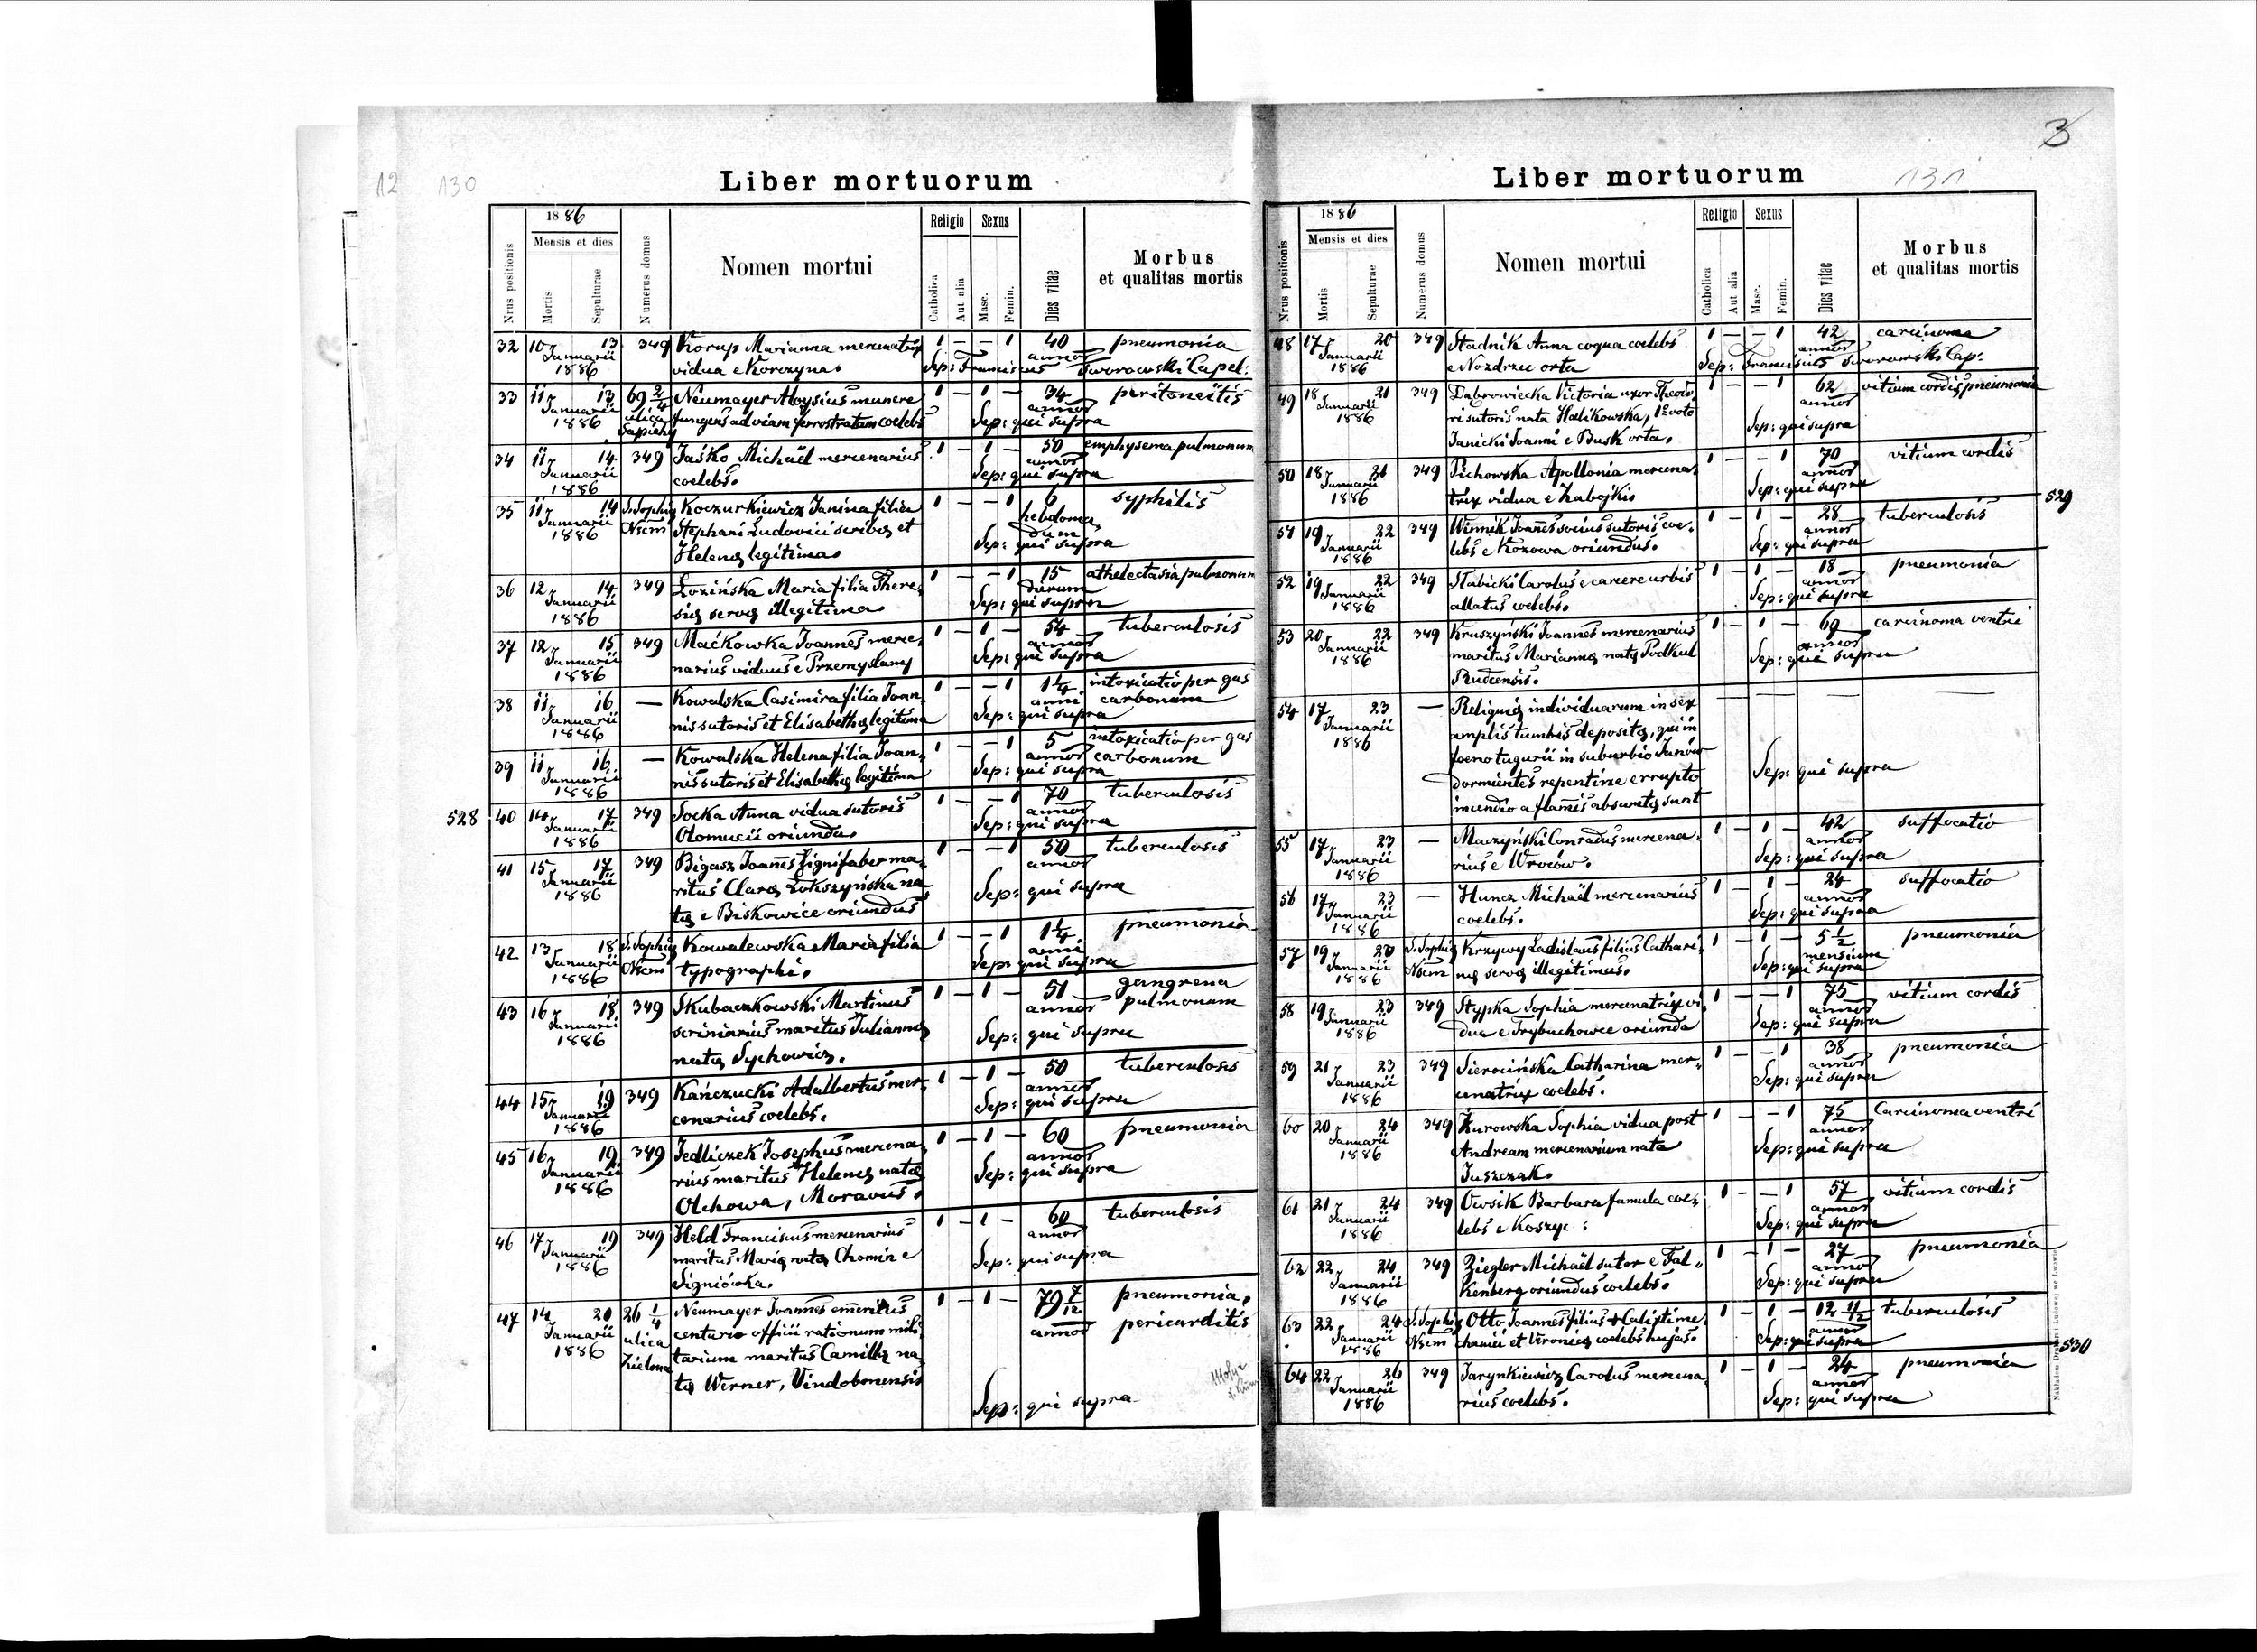 12 130
Liber mortuorum
1886
Mensis et dies
Religio Sexus
Nrus positionis
Mortis
Sepulturae
Numerus domus
Nomen mortui
Catholica
Aut alia
Masc.
Femin.
Dies vitae
Morbus
et qualitas mortis
32 10 13 349 Korup Marianna mercenatrix 1 — — 1 40 pneumonia
Januarii vidua e Korczyna. annor
1886 Sep: Franciscus Tworowski Capel:
33 11 13 69 2/4 Neumayer Aloysius munere 1 — 1 — 34 peritoneitis
Januarii ulica fungens ad viam ferrostratam coelebs annor
1886 Sapiehy Sep: qui supra
34 11 14 349 Jaśko Michaël mercenarius 1 — 1 — 50 emphysema pulmonum
Januarii coelebs. annor
1886 Sep: qui supra
35 11 14 S. Sophię Koczurkiewicz Janina filia 1 — — 1 6 syphilis
Januarii Nsem Stephani Ludovici scribę et hebdoma
1886 Helenę legitima. dum
Sep: qui supra
36 12 14 349 Łozińska Maria filia There 1 — — 1 15 athelectasia pulmonum
Januarii się servę illegitima. dierum
1886 Sep: qui supra
37 12 15 349 Maćkowka Joannes merce 1 — 1 — 54 tuberculosis
Januarii narius viduus e Przemyslany annor
1886 Sep: qui supra
38 11 16 — Kowalska Casimira filia Joan 1 — — 1 1 1/4 intoxicatio per gas
Januarii nis sutoris et Elisabethę legitima anni carbonum
1886 Sep: qui supra
39 11 16 — Kowalska Helena filia Joan 1 — — 1 5 intoxicatio per gas
Januarii nis sutoris et Elisabethę legitima annor carbonum
1886 Sep: qui supra
528 40 14 17 349 Socka Anna vidua sutoris 1 — — 1 70 tuberculosis
Januarii Olomucii oriunda. annor
1886 Sep: qui supra
41 15 17 349 Bigasz Joannes lignifaber ma 1 — — 1 50 tuberculosis
Januarii ritus Clarę Łokszyńska na annor
1886 tę e Biskowice oriundus Sep: qui supra
42 13 18 S. Sophię Kowalewska Maria filia 1 — — 1 1 1/4 pneumonia
Januarii Nsem typographi. anni
1886 Sep: qui supra
43 16 18 349 Skubaczkowski Martinus 1 — 1 — 51 gangrena
Januarii scriniarius maritus Juliannę annor pulmonum
1886 natę Sychowicz. Sep: qui supra
44 15 19 349 Kańczucki Adalbertus mer 1 — 1 — 50 tuberculosis
Januarii cenarius coelebs. annor
1886 Sep: qui supra
45 16 19 349 Jedliczek Josephus mercena 1 — 1 — 60 pneumonia
Januarii rius maritus Helenę natę annor
1886 Olchowa, Moravus. Sep: qui supra
46 17 19 349 Held Franciscus mercenarius 1 — 1 — 60 tuberculosis
Januarii maritus Marię natę Chomin e annor
1886 Signiówka. Sep: qui supra
47 14 20 26 1/4 Neumayer Joannes emeritus 1 — 1 — 79 7/12 pneumonia,
Januarii ulica centurio officii rationum mili annor pericarditis
1886 Zielona tarium maritus Camillę na
tę Werner, Vindobonensis
Sep: qui supra
3
Liber mortuorum 131
1886
Mensis et dies
Religio Sexus
Nrus positionis
Mortis
Sepulturae
Numerus domus
Nomen mortui
Catholica
Aut alia
Masc.
Femin.
Dies vitae
Morbus
et qualitas mortis
48 17 20 349 Stadnik Anna coqua coelebs 1 — — 1 42 carcinoma
Januarii e Nozdrzec orta annor
1886 Sep: Franciscus Tworowski Cap:
49 18 21 349 Dąbrowiecka Victoria uxor Theodo 1 — — 1 62 vitium cordis, pneumonia
Januarii ri sutoris nata Halikowska, 1o voto annor
1886 Janicki Joanni e Busk orta. Sep: qui supra
50 18 21 349 Pichowska Apollonia mercena 1 — — 1 70 vitium cordis
Januarii trix vidua e Zabojki annor
1886 Sep: qui supra
529
51 19 22 349 Winnik Joannes socius sutoris coe 1 — 1 — 28 tuberculosis
Januarii lebs e Kozowa oriundus. annor
1886 Sep: qui supra
52 19 22 349 Stabicki Carolus e carcere urbis 1 — 1 — 18 pneumonia
Januarii allatus coelebs. annor
1886 Sep: qui supra
53 20 22 349 Kruszyński Joannes mercenarius 1 — 1 — 69 carcinoma ventri
Januarii maritus Mariannę natę Podkul annor
1886 Rudcensis. Sep: qui supra
54 17 23 — Reliquię individuarum in sex — — — —
Januarii amplis tumbis depositę, qui in
1886 foeno tugurii in suburbio Janów
dormientes repentine errupto
incendio a flamis absumptę sunt
Sep: qui supra
55 17 23 — Maczyński Conradus mercena 1 — 1 — 42 suffocatio
Januarii rius e Wroców. annor
1886 Sep: qui supra
56 17 23 — Huncz Michaël mercenarius 1 — 1 — 24 suffocatio
Januarii coelebs. annor
1886 Sep: qui supra
57 19 23 S. Sophię Krzywy Ladislaus filius Cathari 1 — 1 — 5 1/2 pneumonia
Januarii Nsem nę servę illegitimus. mensium
1886 Sep: qui supra
58 19 23 349 Stypka Sophia mercenatrix vi 1 — — 1 75 vitium cordis
Januarii dua e Trybuchowce oriunda annor
1886 Sep: qui supra
59 21 23 349 Sierocińska Catharina mer 1 — — 1 38 pneumonia
Januarii cenatrix coelebs. annor
1886 Sep: qui supra
60 20 24 349 Żurowska Sophia vidua post 1 — — 1 75 Carcinoma ventri
Januarii Andream mercenarium nata annor
1886 Juszczak. Sep: qui supra
61 21 24 349 Owsik Barbara famula coe 1 — — 1 57 vitium cordis
Januarii lebs e Koszyc: annor
1886 Sep: qui supra
62 22 24 349 Ziegler Michaël sutor e Fal 1 — 1 — 27 pneumonia
Januarii kenberg oriundus coelebs. annor
1886 Sep: qui supra
63 22 24 S. Sophię Otto Joannes filius Calisti me 1 — 1 — 12 11/12 tuberculosis
Januarii Nsem chanici et Veronicę coelebs hujas. annor
1886 Sep: qui supra
530
64 22 26 349 Jarynkiewicz Carolus mercena 1 — 1 — 24 pneumonia
Januarii rius coelebs. annor
1886 Sep: qui supra